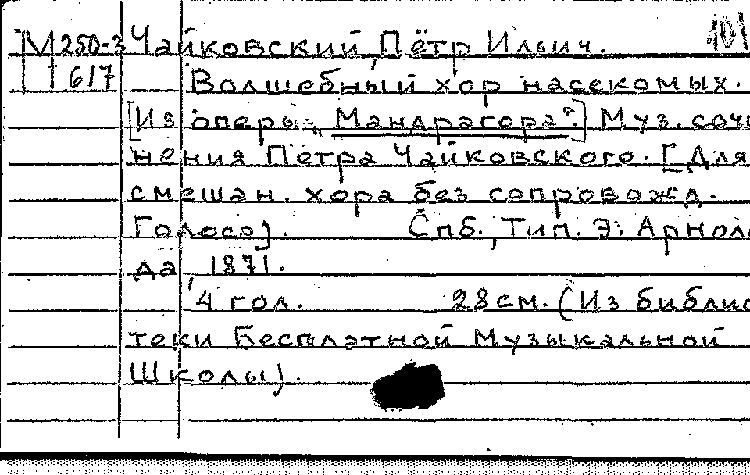 М250-3 Чайковский, Пётр Ильич. 101
617 Волшебный хор насекомых.
[Из оперы „Мандрагора"] Муз. сочи
нения Петра Чайковского. [Для
смешан. хора без сопровожд.
Голоса]. Спб., Тип. Э. Арноль
да, 1871.
4 гол. 28 см. (Из библио
теки Бесплатной Музыкальной
Школы).